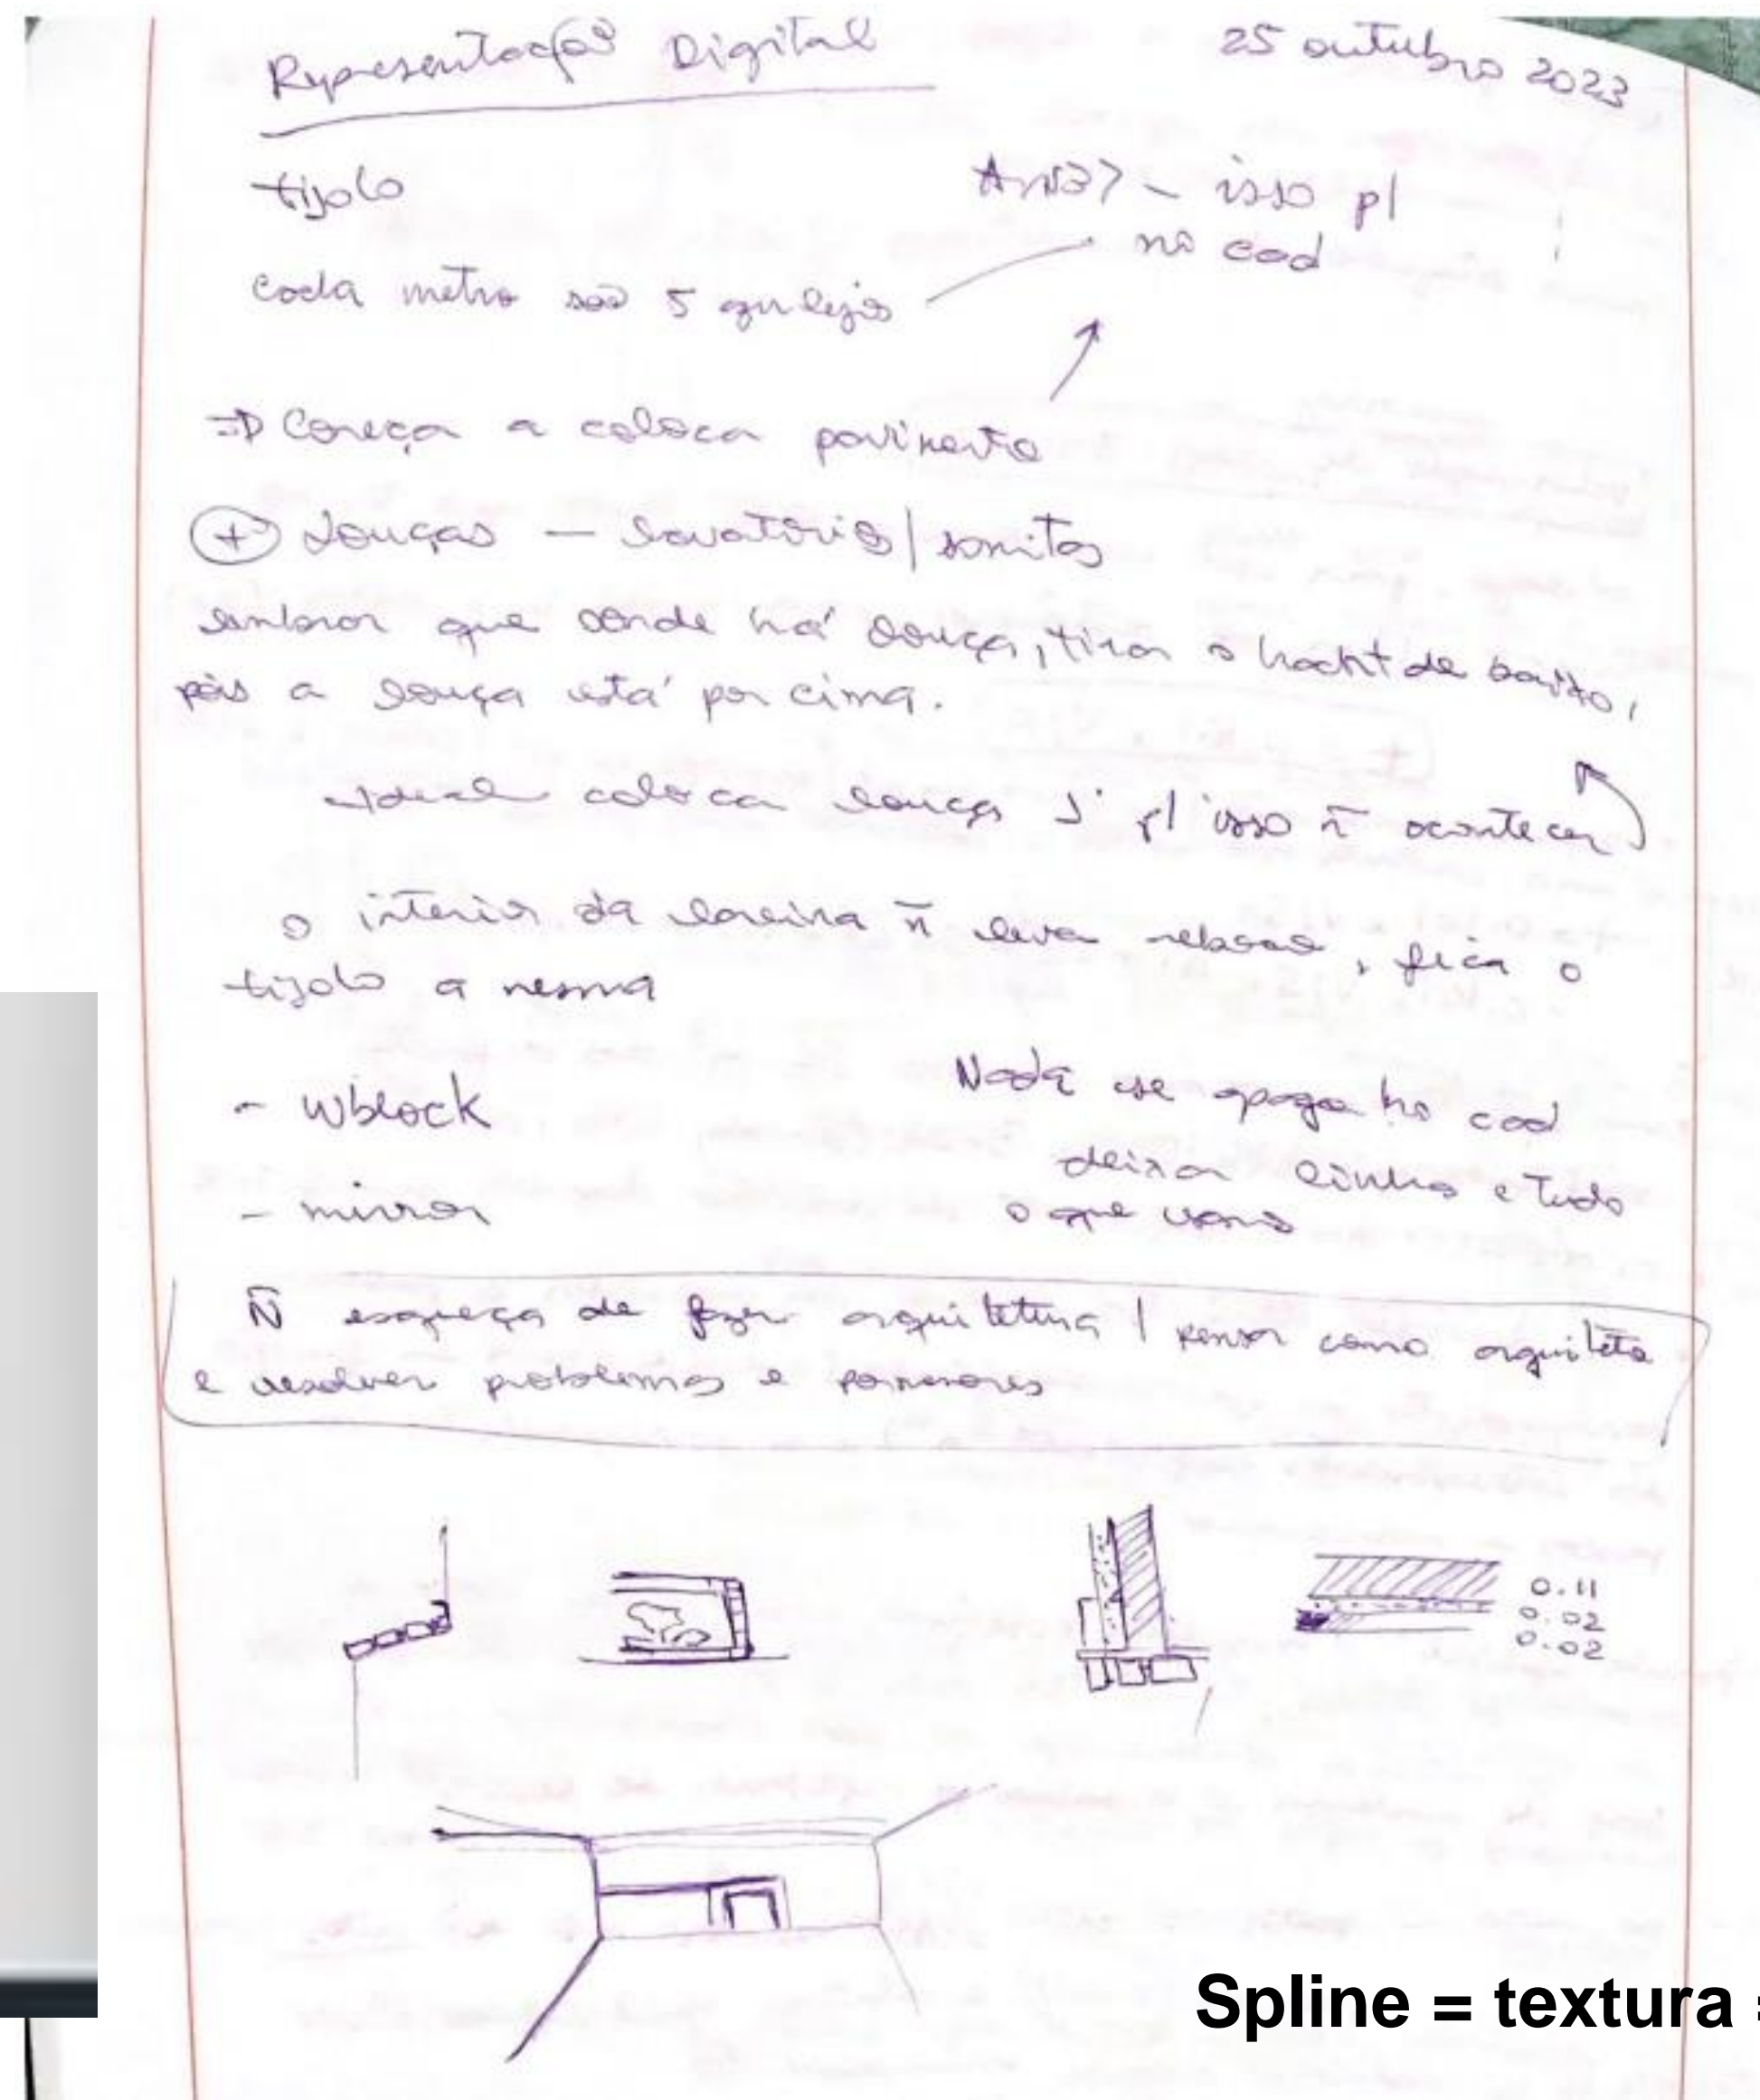 Representação Digital
25 outubro 2023
tijolo
ANSI37 - isso p/
no cad
cada metro são 5 azulejos
=> Começa a colocar pavimento
+ Louças - lavatórios/sanitas
lembrar que onde há louça, tirar o hacht de baixo,
pois a louça está por cima.
Ideal colocar louça 1º p/ isso ñ acontecer
o interior da lareira ñ leva reboco, fica o
tijolo a mesma
- wblock
- mirror
Nada se apaga no cad
deixar linhas e tudo
o que usamos
Ñ esqueça de fazer arquitetura / pensar como arquiteta
e resolver problemas e pormenores
0.11
0.02
0.02
Spline = textura =